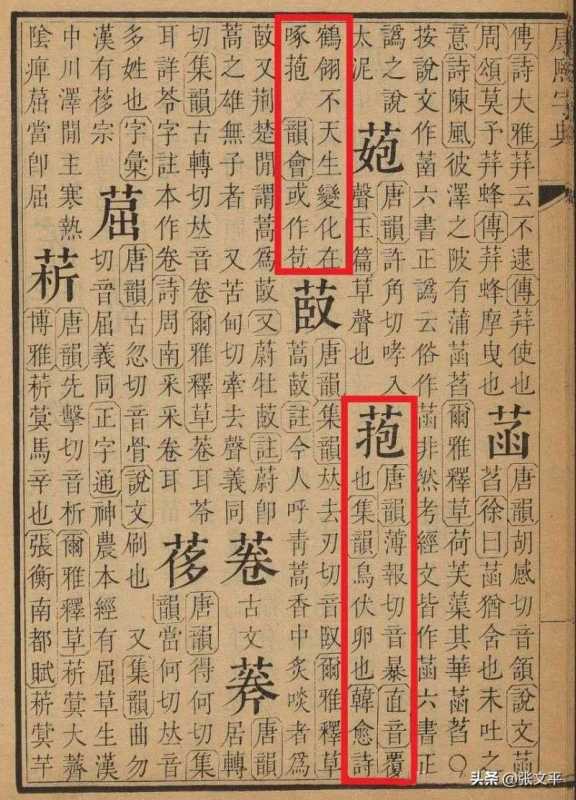 康熙字典
傳詩大雅荓云不逮傳荓使也
周頌莫予荓蜂傳荓蜂摩曳也
菡
唐韻胡感切音頷說文菡
萏徐曰菡猶舍也未吐之
意詩陳風彼澤之陂有蒲菡萏爾雅釋草荷芙蕖其華菡萏〇
按說文作菡六書正譌云俗作菡非然考經文皆作菡六書正
譌之說
太泥
唐韻許角切哮入
聲玉篇草聲也
菢
唐韻薄報切音暴直音覆
也集韻鳥伏卵也韓愈詩
鶴翎不天生變化在
啄菢 韻會或作苞
菣
唐韻集韻𠀤去刃切音臤爾雅釋草
蒿菣註今人呼青蒿香中炙啖者為
菣又荆楚閒謂蒿為菣又蔚牡菣註蔚卽
蒿之雄無子者 又苦甸切牽去聲義同
菤
古文
唐韻
居轉
切集韻古轉切𠀤音卷爾雅釋草菤耳苓
耳詳苓字註本作卷詩周南采采卷耳
唐韻得何切集
韻當何切𠀤音
多姓也字彙
漢有宗
唐韻古忽切音骨說文刷也 又集韻曲勿
切音屈義同正字通神農本經有屈草生漢
中川澤閒主寒熱
陰痺䓛當卽屈
菥
唐韻先擊切音析爾雅釋草菥蓂大薺
博雅菥蓂馬辛也張衡南都賦菥蓂芊
头条 @张文平